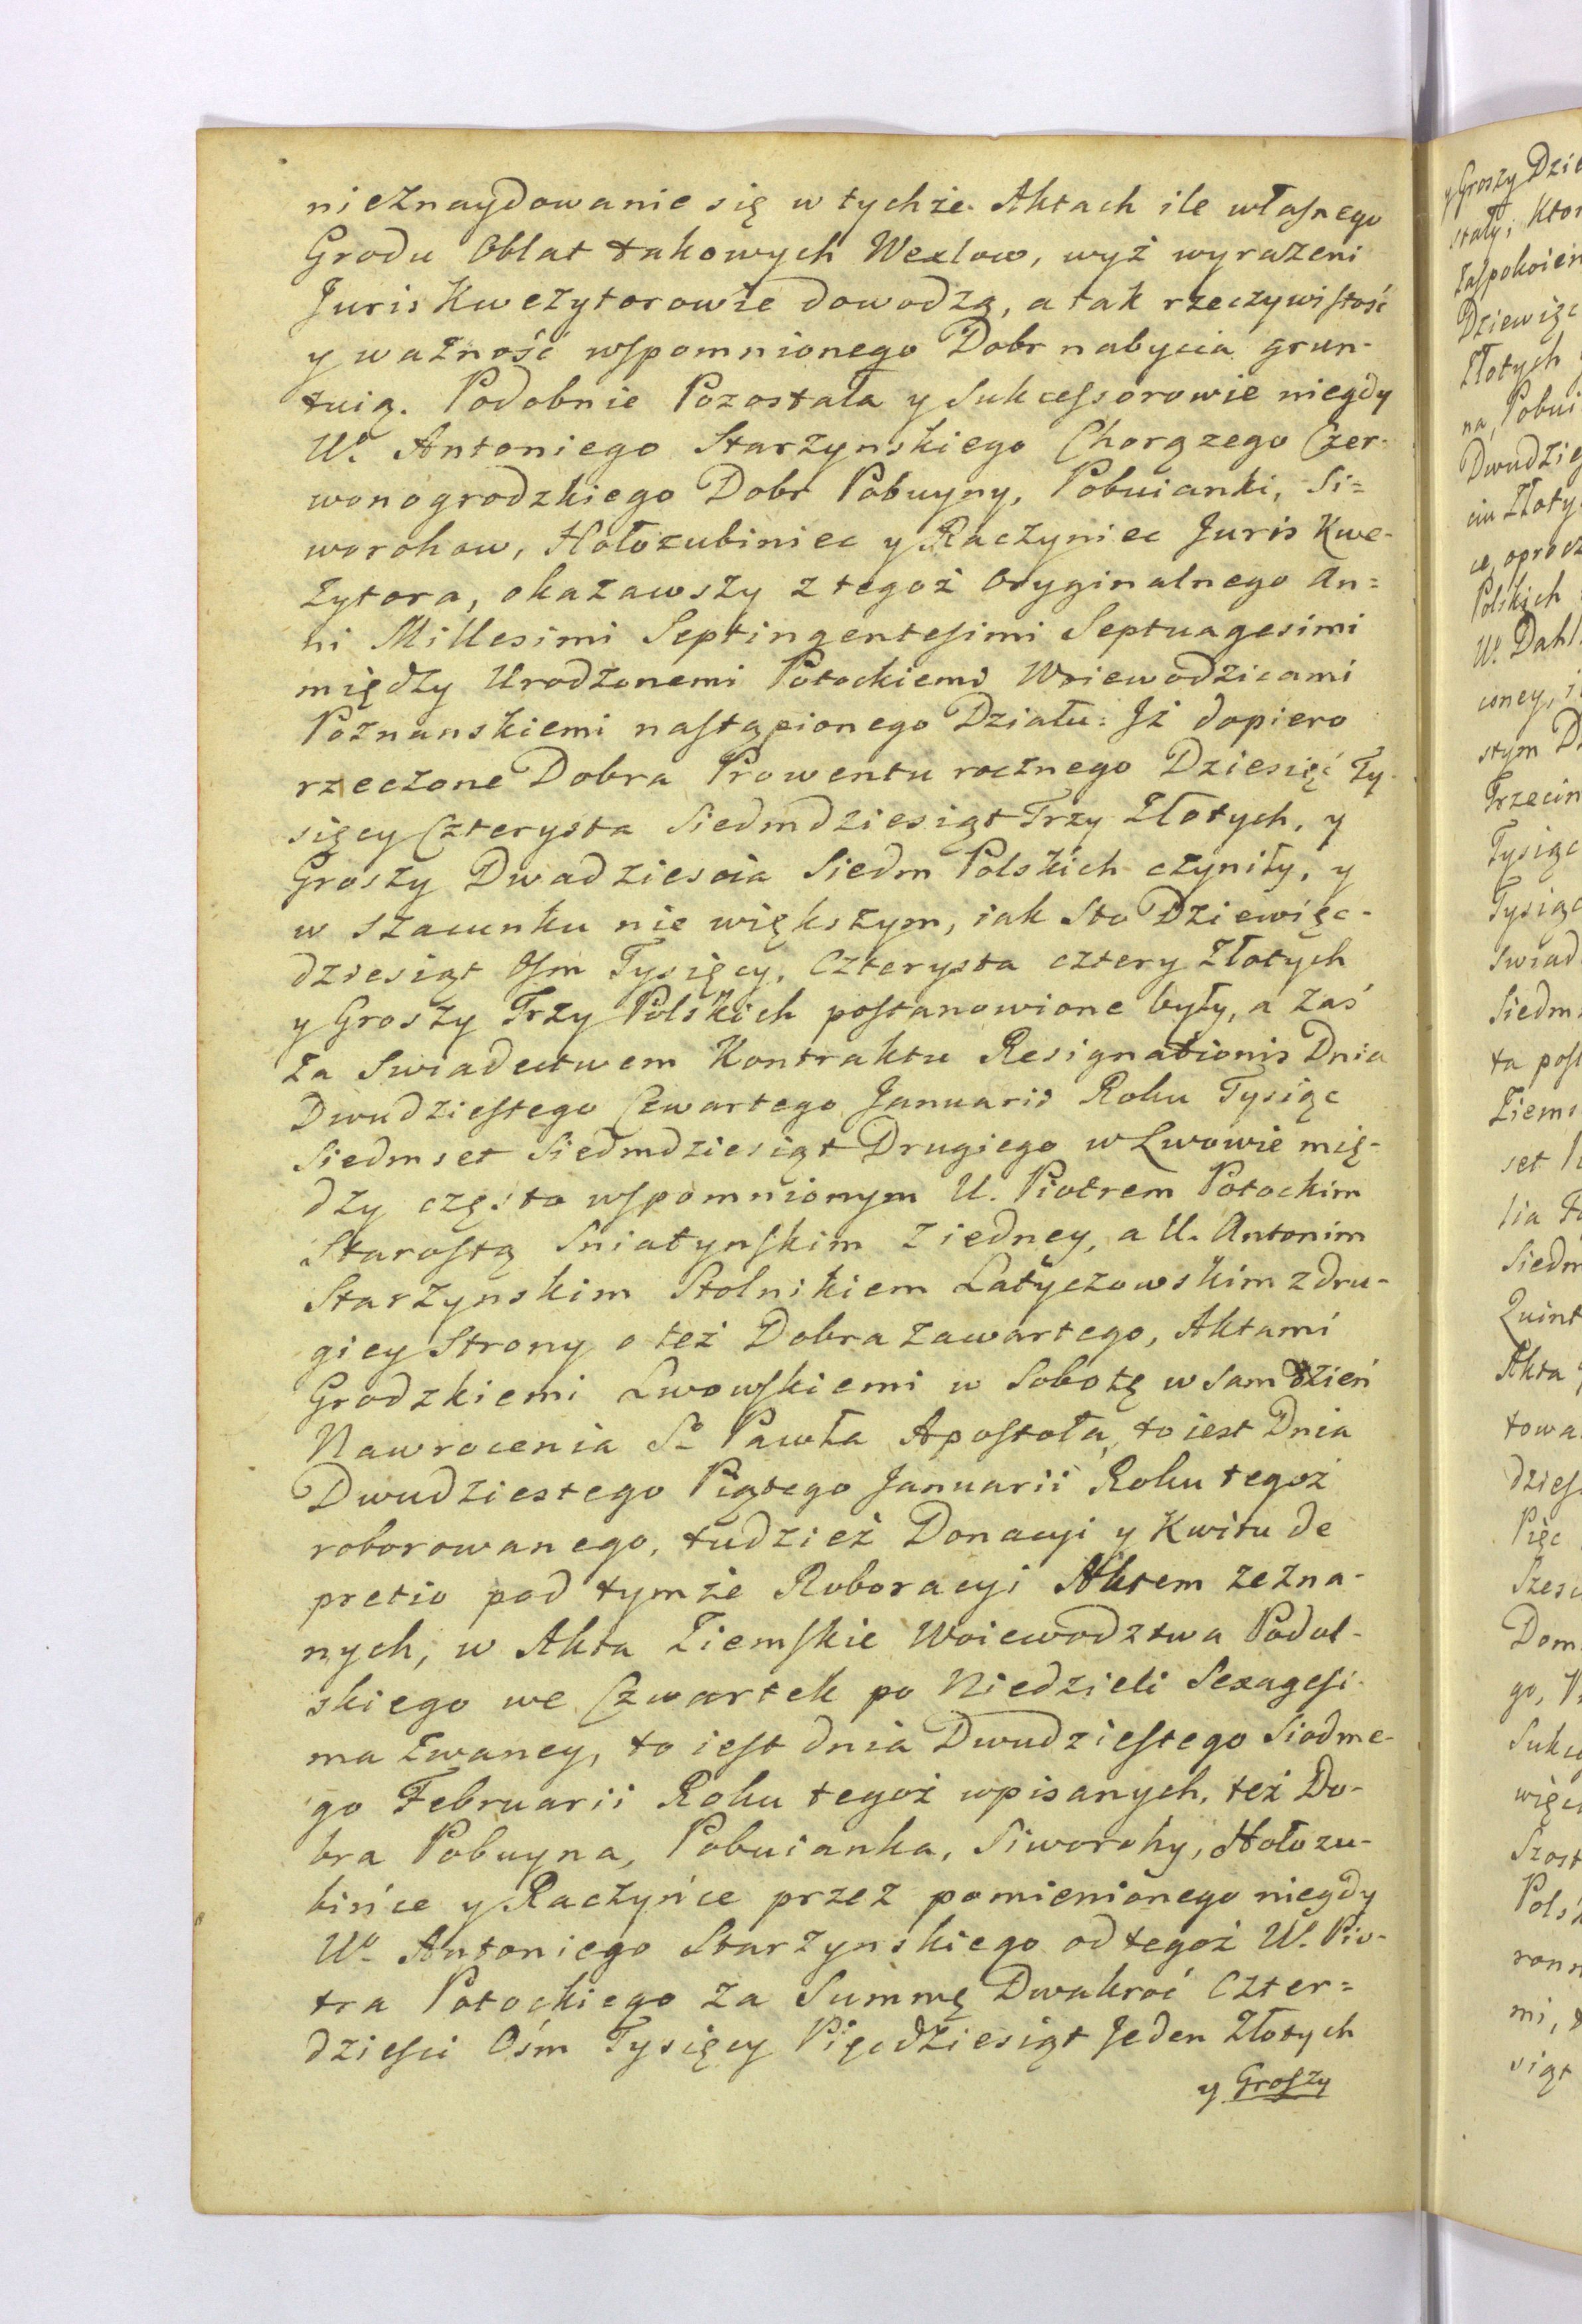 nieznaydowanie się w tychże Aktach ile własnego
Grodu Oblat takowych Wexlow, wyż wyrażeni
Juris Kwezytorowie dowodzą, a tak rzeczywistość
y ważność wspomnionego Dobr nabycia grun-
tuią. Podobnie Pozostała y Sukcessorowie niegdy
Wº Antoniego Starzynskiego Chorązego Czer-
wonogrodzkiego Dobr Pobuyny, Pobuianki, Si=
worohow, Hołozubiniec y Raczyniec Juris Kwe-
zytora, okazawszy z tegoż Oryginalnego An=
ni Millesimi Septingentesimi Septuagesimi
między Urodzonemi Potockiemi Woiewodzicami
Poznanskiemi nastąpionego Działu: Jż dopiero
rzeczone Dobra Prowentu rocznego Dziesięć Ty-
sięcy Czterysta Siedmdziesiąt Trzy Złotych, y
Groszy Dwadziescia Siedm Polskich czyniły, y
w szacunku nie większym, iak Sto Dziewięc-
dziesiąt Osm Tysięcy, Czterysta cztery Złotych
y Groszy Trzy Polskich postanowione były, a zaś
za Swiadectwem Kontraktu Resignationis Dnia
Dwudziestego Czwartego Januarii Roku Tysiąc
Siedmset Siedmdziesiąt Drugiego w Lwowie mię-
dzy często wspomnionym U. Piotrem Potockim
Starostą Sniatynskim z iedney, a U. Antonim
Starzynskim Stolnikiem Latyczowskim z dru-
giey Strony o też Dobra zawartego, Aktami
Grodzkiemi Lwowskiemi w Sobotę w sam dzień
Nawrocenia Sº Pawła Apostoła, to iest Dnia
Dwudziestego Piątego Januarii Roku tegoż
roborowanego, tudzież Donacyi y Kwitu de
pretio pod tymże Roboracyi Aktem zezna-
nych, w Akta Ziemskie Woiewodztwa Podol-
skiego we Czwartek po Niedzieli Sexagesi-
ma zwaney, to iest dnia Dwudziestego Siodme-
go Februarii Roku tegoż wpisanych, też Do-
bra Pobuyna, Pobuianka, Siworohy, Hołozu-
bińce y Raczyńce przez pomienionego niegdy
Wº Antoniego Starzynskiego od tegoż W. Pio-
tra Potockiego za Summę Dwakroć Czter=
dziesci Ośm Tysięcy Pięcdziesiąt Jeden Złotych
y Groszy